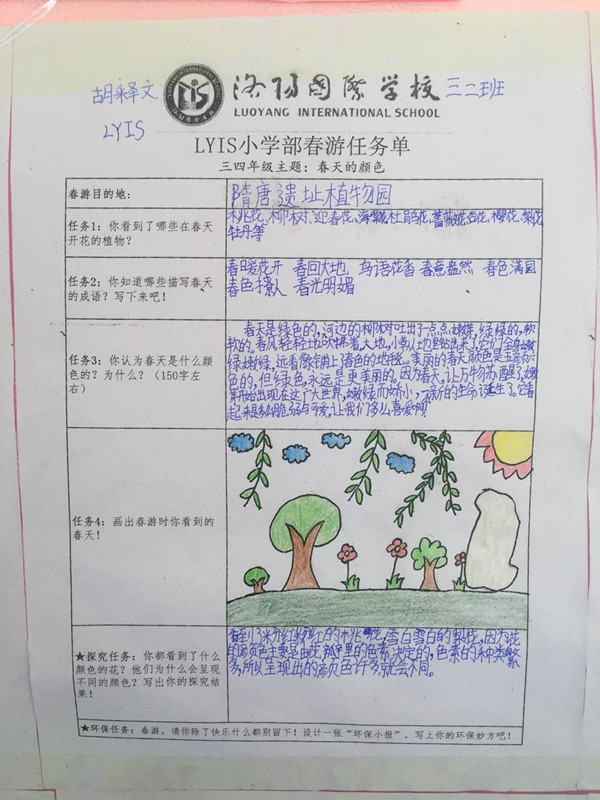 胡释文
LYIS
洛阳国际学校
三二班
LUOYANG INTERNATIONAL SCHOOL
LYIS小学部春游任务单
三四年级主题：春天的颜色
春游目的地：
隋唐遗址植物园
任务1：你看到了哪些在春天
开花的植物？
桃花、柳树、迎春花、海棠花、杜鹃花、蔷薇花、杏花、樱花、梨花
牡丹等
任务2：你知道哪些描写春天
的成语？写下来吧！
春暖花开 春回大地 鸟语花香 春意盎然 春色满园
春色撩人 春光明媚
任务3：你认为春天是什么颜
色的？为什么？（150字左
右）
春天是绿色的，河边的柳树吐出了一点点嫩芽，绿绿的，软
软的。春风轻轻地吹拂着大地，小草从土里钻出来了，它们全身嫩
绿嫩绿，远看像铺上了绿色的地毯。美丽的春天颜色是五颜六
色的，但绿色，永远是更美丽的。因为春天，让万物苏醒了，嫩
芽开始出现在这广大世界，嫩绿而娇小，新的生命诞生了。它看
起来是多么脆弱与可爱，让我们多么喜爱啊！
任务4：画出春游时你看到的
春天！
★探究任务：你都看到了什么
颜色的花？他们为什么会呈现
不同的颜色？写出你的探究结
果！
看到了粉红粉红的桃花，雪白雪白的梨花，因为花
的颜色主要是由花瓣里的色素决定的，色素的种类繁
多，所以呈现出的颜色许多就会不同。
★环保任务：春游，请你除了快乐什么都别留下！设计一张“环保小报”，写上你的环保妙方吧！